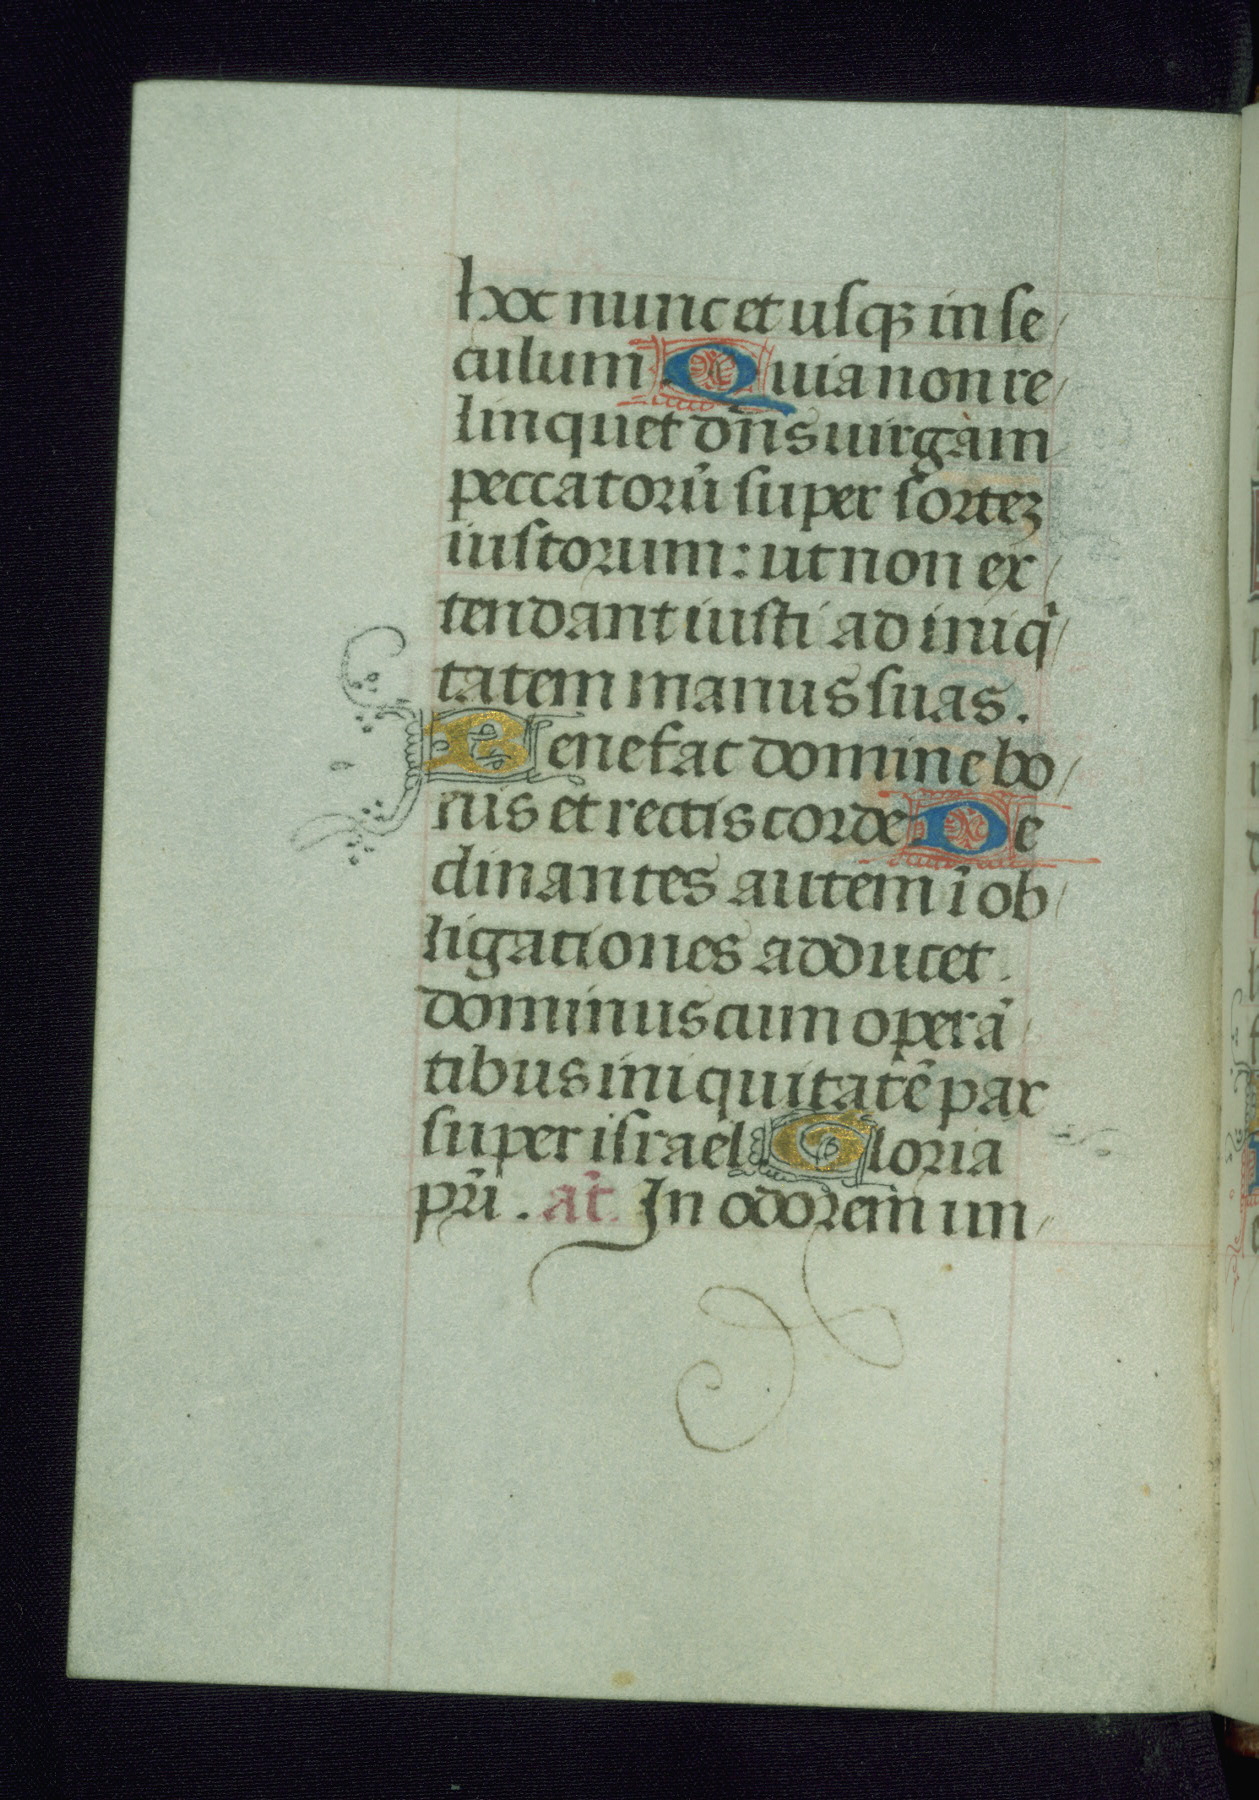 hoc nunc et usqꝫ in se/
culum Quia non re/
linquet dn̄s uirgam
peccatorū super sortez
iustorum: ut non ex/
tendant iusti ad iniqͥ/
tatem manus suas.
Benefac domine bo/
nis et rectis corde De
clinantes autem ī ob/
ligationes adducet.
dominus cum operā/
tibus iniquitatē pax
super israel Gloria
pr̄i. an̄t. In odorem un/